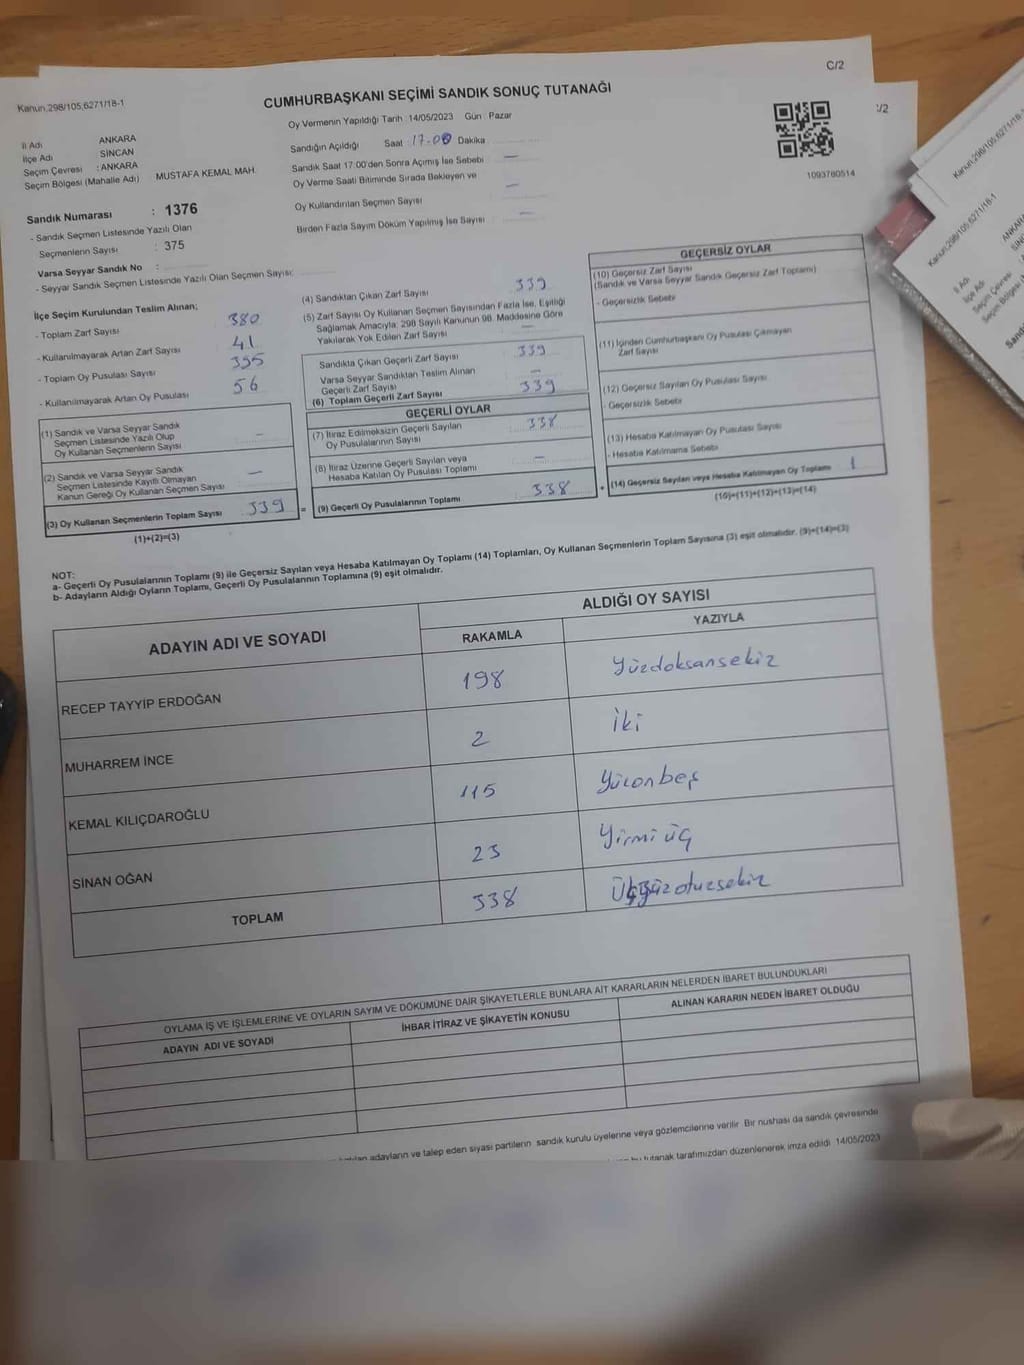 C/2
Kanun;298/105,6271/18-1
CUMHURBAŞKANI SEÇİMİ SANDIK SONUÇ TUTANAĞI
Oy Vermenin Yapıldığı Tarih : 14/05/2023 Gün : Pazar
İl Adı ANKARA
İlçe Adı SİNCAN
Seçim Çevresi : ANKARA
Seçim Bölgesi (Mahalle Adı) MUSTAFA KEMAL MAH.
Sandığın Açıldığı Saat 17.00 Dakika
Sandık Saat 17:00'den Sonra Açımış İse Sebebi —
Oy Verme Saati Bitiminde Sırada Bekleyen ve
Oy Kullandırılan Seçmen Sayısı —
Birden Fazla Sayım Döküm Yapılmış İse Sayısı —
1093760514
Sandık Numarası : 1376
- Sandık Seçmen Listesinde Yazılı Olan
Seçmenlerin Sayısı : 375
Varsa Seyyar Sandık No :
- Seyyar Sandık Seçmen Listesinde Yazılı Olan Seçmen Sayısı:
İlçe Seçim Kurulundan Teslim Alınan;
- Toplam Zarf Sayısı 380
- Kullanılmayarak Artan Zarf Sayısı 41
- Toplam Oy Pusulası Sayısı 395
- Kullanılmayarak Artan Oy Pusulası 56
(1) Sandık ve Varsa Seyyar Sandık
Seçmen Listesinde Yazılı Olup
Oy Kullanan Seçmenlerin Sayısı —
(2) Sandık ve Varsa Seyyar Sandık
Seçmen Listesinde Kayıtlı Olmayan
Kanun Gereği Oy Kullanan Seçmen Sayısı —
(3) Oy Kullanan Seçmenlerin Toplam Sayısı 339 =
(1)+(2)=(3)
(4) Sandıktan Çıkan Zarf Sayısı 339
(5) Zarf Sayısı Oy Kullanan Seçmen Sayısından Fazla İse, Eşitliği
Sağlamak Amacıyla; 298 Sayılı Kanunun 98. Maddesine Göre
Yakılarak Yok Edilen Zarf Sayısı —
Sandıkta Çıkan Geçerli Zarf Sayısı 339
Varsa Seyyar Sandıktan Teslim Alınan
Geçerli Zarf Sayısı —
(6) Toplam Geçerli Zarf Sayısı 339
GEÇERLİ OYLAR
(7) İtiraz Edilmeksizin Geçerli Sayılan
Oy Pusulalarının Sayısı 338
(8) İtiraz Üzerine Geçerli Sayılan veya
Hesaba Katılan Oy Pusulası Toplamı —
(9) Geçerli Oy Pusulalarının Toplamı 338 +
GEÇERSİZ OYLAR
(10) Geçersiz Zarf Sayısı
(Sandık ve Varsa Seyyar Sandık Geçersiz Zarf Toplamı)
- Geçersizlik Sebebi
(11) İçinden Cumhurbaşkanı Oy Pusulası Çıkmayan
Zarf Sayısı
(12) Geçersiz Sayılan Oy Pusulası Sayısı
- Geçersizlik Sebebi
(13) Hesaba Katılmayan Oy Pusulası Sayısı
- Hesaba Katılmama Sebebi
(14) Geçersiz Sayılan veya Hesaba Katılmayan Oy Toplamı 1
(10)+(11)+(12)+(13)=(14)
NOT:
a- Geçerli Oy Pusulalarının Toplamı (9) ile Geçersiz Sayılan veya Hesaba Katılmayan Oy Toplamı (14) Toplamları, Oy Kullanan Seçmenlerin Toplam Sayısına (3) eşit olmalıdır. (9)+(14)=(3)
b- Adayların Aldığı Oyların Toplamı, Geçerli Oy Pusulalarının Toplamına (9) eşit olmalıdır.
ADAYIN ADI VE SOYADI
ALDIĞI OY SAYISI
RAKAMLA YAZIYLA
RECEP TAYYİP ERDOĞAN 198 Yüzdoksansekiz
MUHARREM İNCE 2 İki
KEMAL KILIÇDAROĞLU 115 Yüzonbeş
SİNAN OĞAN 23 Yirmi üç
TOPLAM 338 Üçyüzotuzsekiz
OYLAMA İŞ VE İŞLEMLERİNE VE OYLARIN SAYIM VE DÖKÜMÜNE DAİR ŞİKAYETLERLE BUNLARA AİT KARARLARIN NELERDEN İBARET BULUNDUKLARI
ADAYIN ADI VE SOYADI
İHBAR İTİRAZ VE ŞİKAYETİN KONUSU
ALINAN KARARIN NEDEN İBARET OLDUĞU
adayların ve talep eden siyasi partilerin sandık kurulu üyelerine veya gözlemcilerine verilir. Bir nushası da sandık çevresinde
tutanak tarafımızdan düzenlenerek imza edildi. 14/05/2023
/2
Kanun;298/105,6271/18-1
Kanun;298/105,6271/18-1
İl Adı
İlçe Adı
Seçim Çevresi